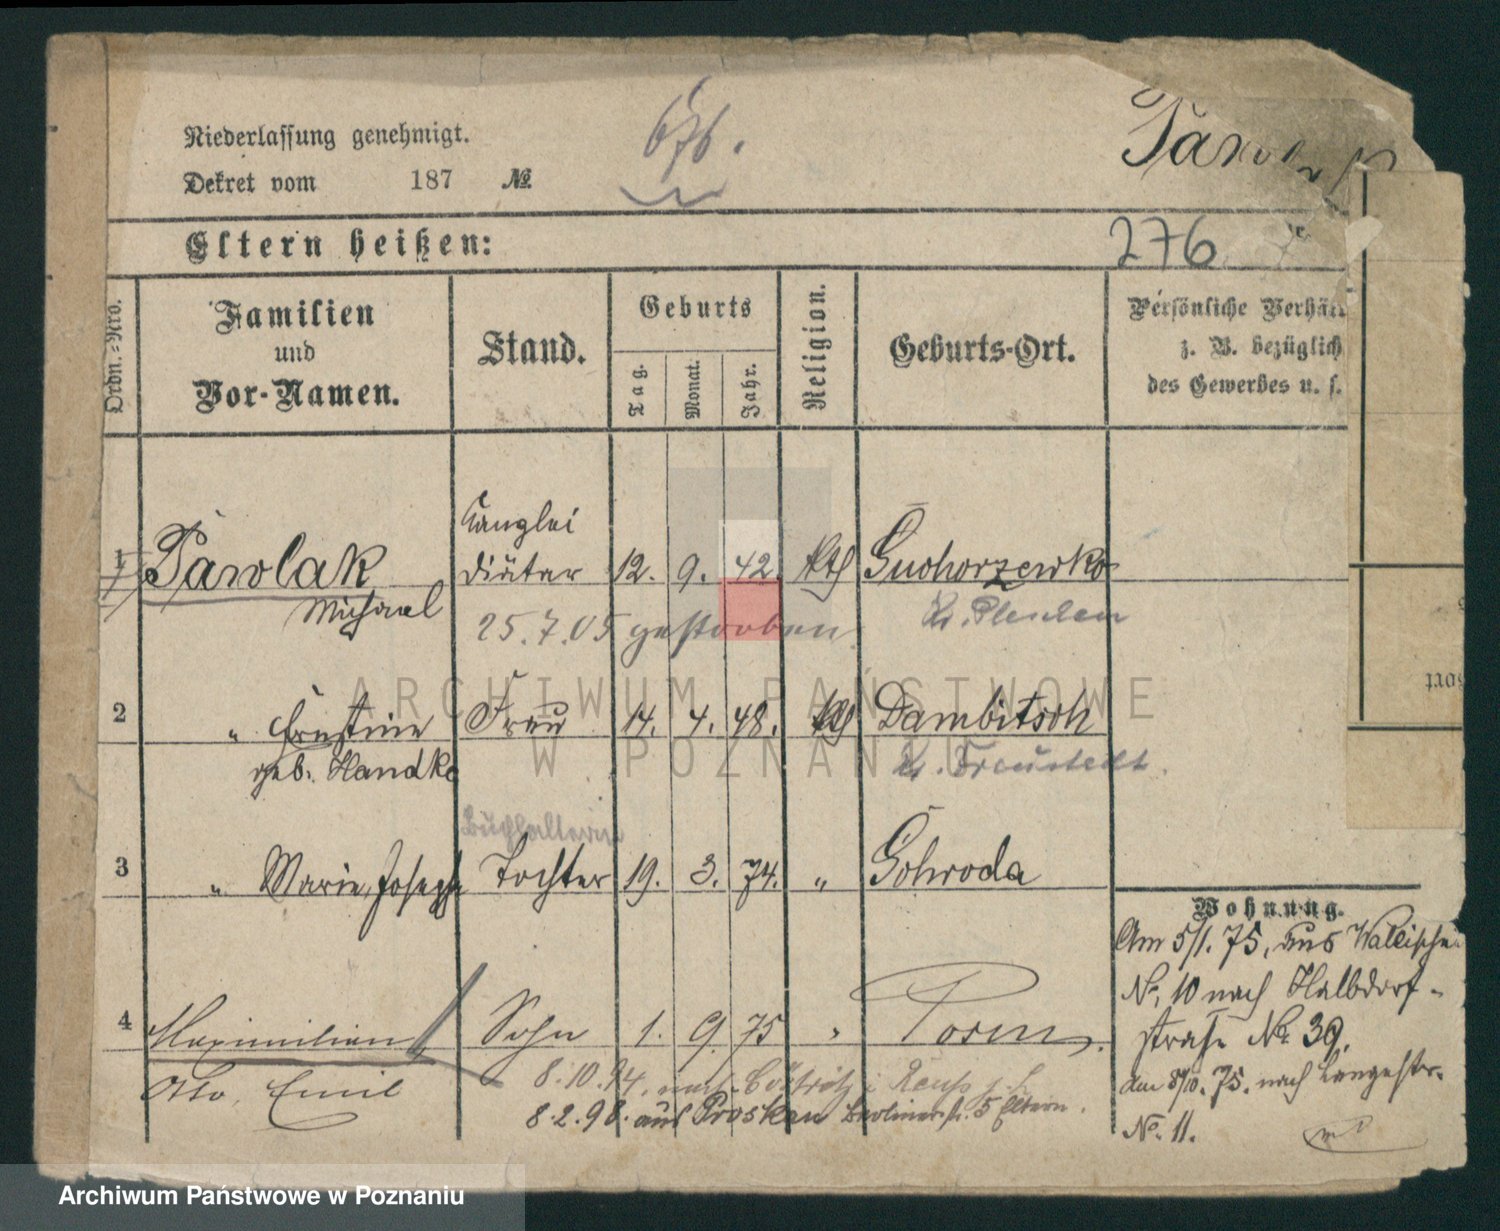 Niederlassung genehmigt.
676.
Dekret vom 187 №
Pawlak
Eltern heißen:
276
Ordn.-Nro.
Familien
und
Vor-Namen.
Stand.
Geburts
Tag.
Monat.
Jahr.
Religion.
Geburts-Ort.
Persönliche Verhäl
z. B. bezüglich
des Gewerbes u. s.
Kanzlei
1 Pawlak Diätar 12. 9. 42. kth Suchorzewko
Michael
Kr. Pleschen
25.7.05 gestorben
2 " Ernstine Frau 14. 4. 48. kth Dambitsch
geb. Handke
Kr. Fraustadt.
Buchhalterin
3 " Marie, Josepha Tochter 19. 3. 74. " Gohroda
4 Maximilian Sohn 1. 9. 75 " Posen.
Otto, Emil
8.10.94. nach
8.2.98. aus Proskau Berlinerstr. 5 Eltern.
Wohnung.
Am 5/1. 75, aus Wallischei
No. 10 nach Halbdorf-
straße No. 39.
Am 8/10. 75. nach Langestr.
No. 11.
ort
ARCHIWUM PAŃSTWOWE
W POZNANIU
Archiwum Państwowe w Poznaniu